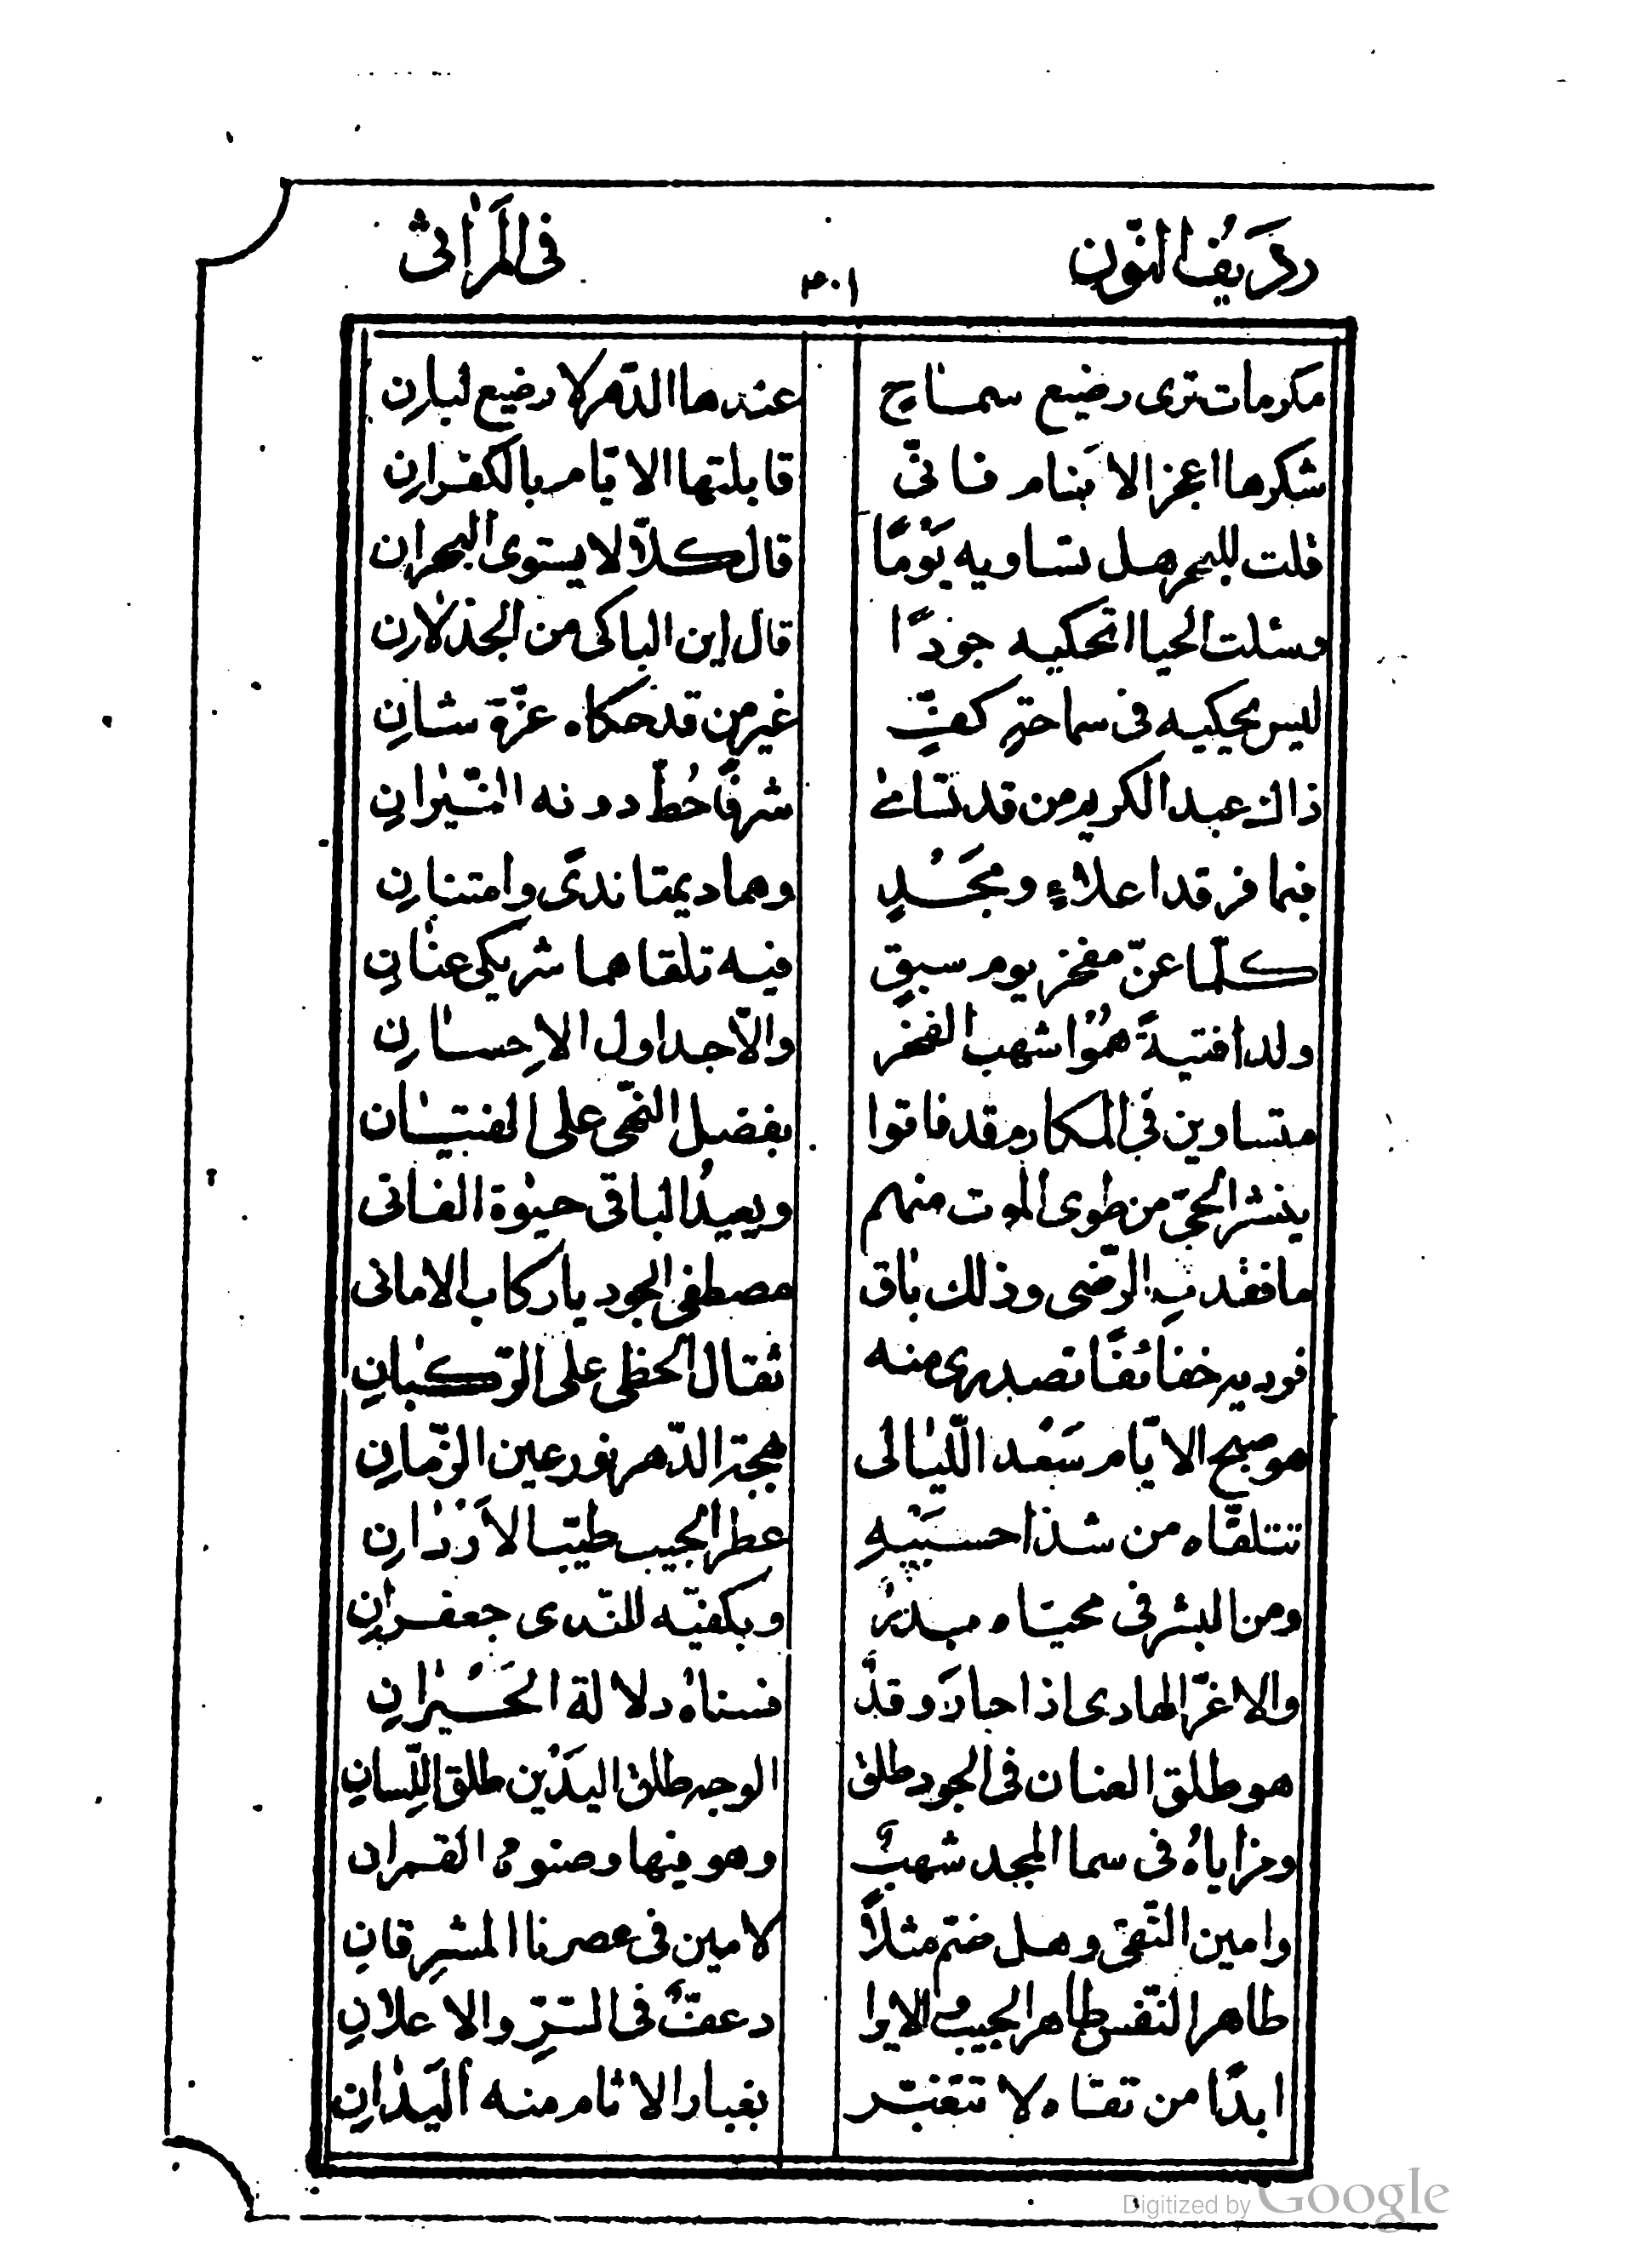 رديف النّون ٣٠١ فى المراثى
مكرمات ترى رضيع سماح عندها الدّهر لا رضيع لبانِ
شكرها اعجز الانام فانّى قابلتها الايّام بالكفرانِ
قلت للبحر هل تساويه يَوْمًا قال كلّا لا يستوى البحران
وسئلت الحيا اتحكيه جودًا قال اين الباكى من الجذلانِ
ليس يحكيه فى سماحةِ كفٍّ غير من قد حكاه عزّة شانِ
ذاك عبد الكريم من قد تسامىٰ شرفًا حُطّ دونه النّيّرانِ
فهما فرقدا علاءٍ ومَجْدٍ وهما ديمتا ندًى وامتنانِ
كلّما عنّ مفخر يوم سبقٍ فيه تلقاهما شريكى عنانِ
ولدا فتيةً هُمُوا شهب الفخر والّا جداول الاِحسانِ
متساوين فى المكارم قد فاقوا بفضل النّهى على الفتيان
ينشر الحىّ من طوى الموت منهم ويعيدُ الباقى حيوة الفانى
ما فقدت الرّضى وذلك باق مصطفى الجود يا ركاب الامانى
فورديه خفائفًا تصدرى منه ثقال الحظى على الرّكبانِ
هو صبح الايّام سَعْد اللّيالى بهجة الدّهر نور عين الزّمانِ
تتلقّاه من شذا حسبَيْهِ عطر الجيب طيّب الاَرْدانِ
ومن البشر فى محيّاه بدرٌ وبكفيّه للنّدى جعفرانِ
والاغرّ الهادى اذا حارَ وفدٌ فسناهُ دلالة الحَيْرانِ
هو طلق العنان فى الجود طلق الوجه طلق اليدَيْن طلق اللّسانِ
ومزاياهُ فى سما المجد شهبٌ وهو فيها وصنوهُ القمران
وامين التّقى وهل ضمّ مثلاً لامين فى عصرنا المشرقانِ
طاهر النّفس طاهر الجيب والابرا دعفٌّ فى السّرّ والاعلانِ
ابدًا من تقاه لا تتغبّر بغبار الاثام منه اليَدانِ